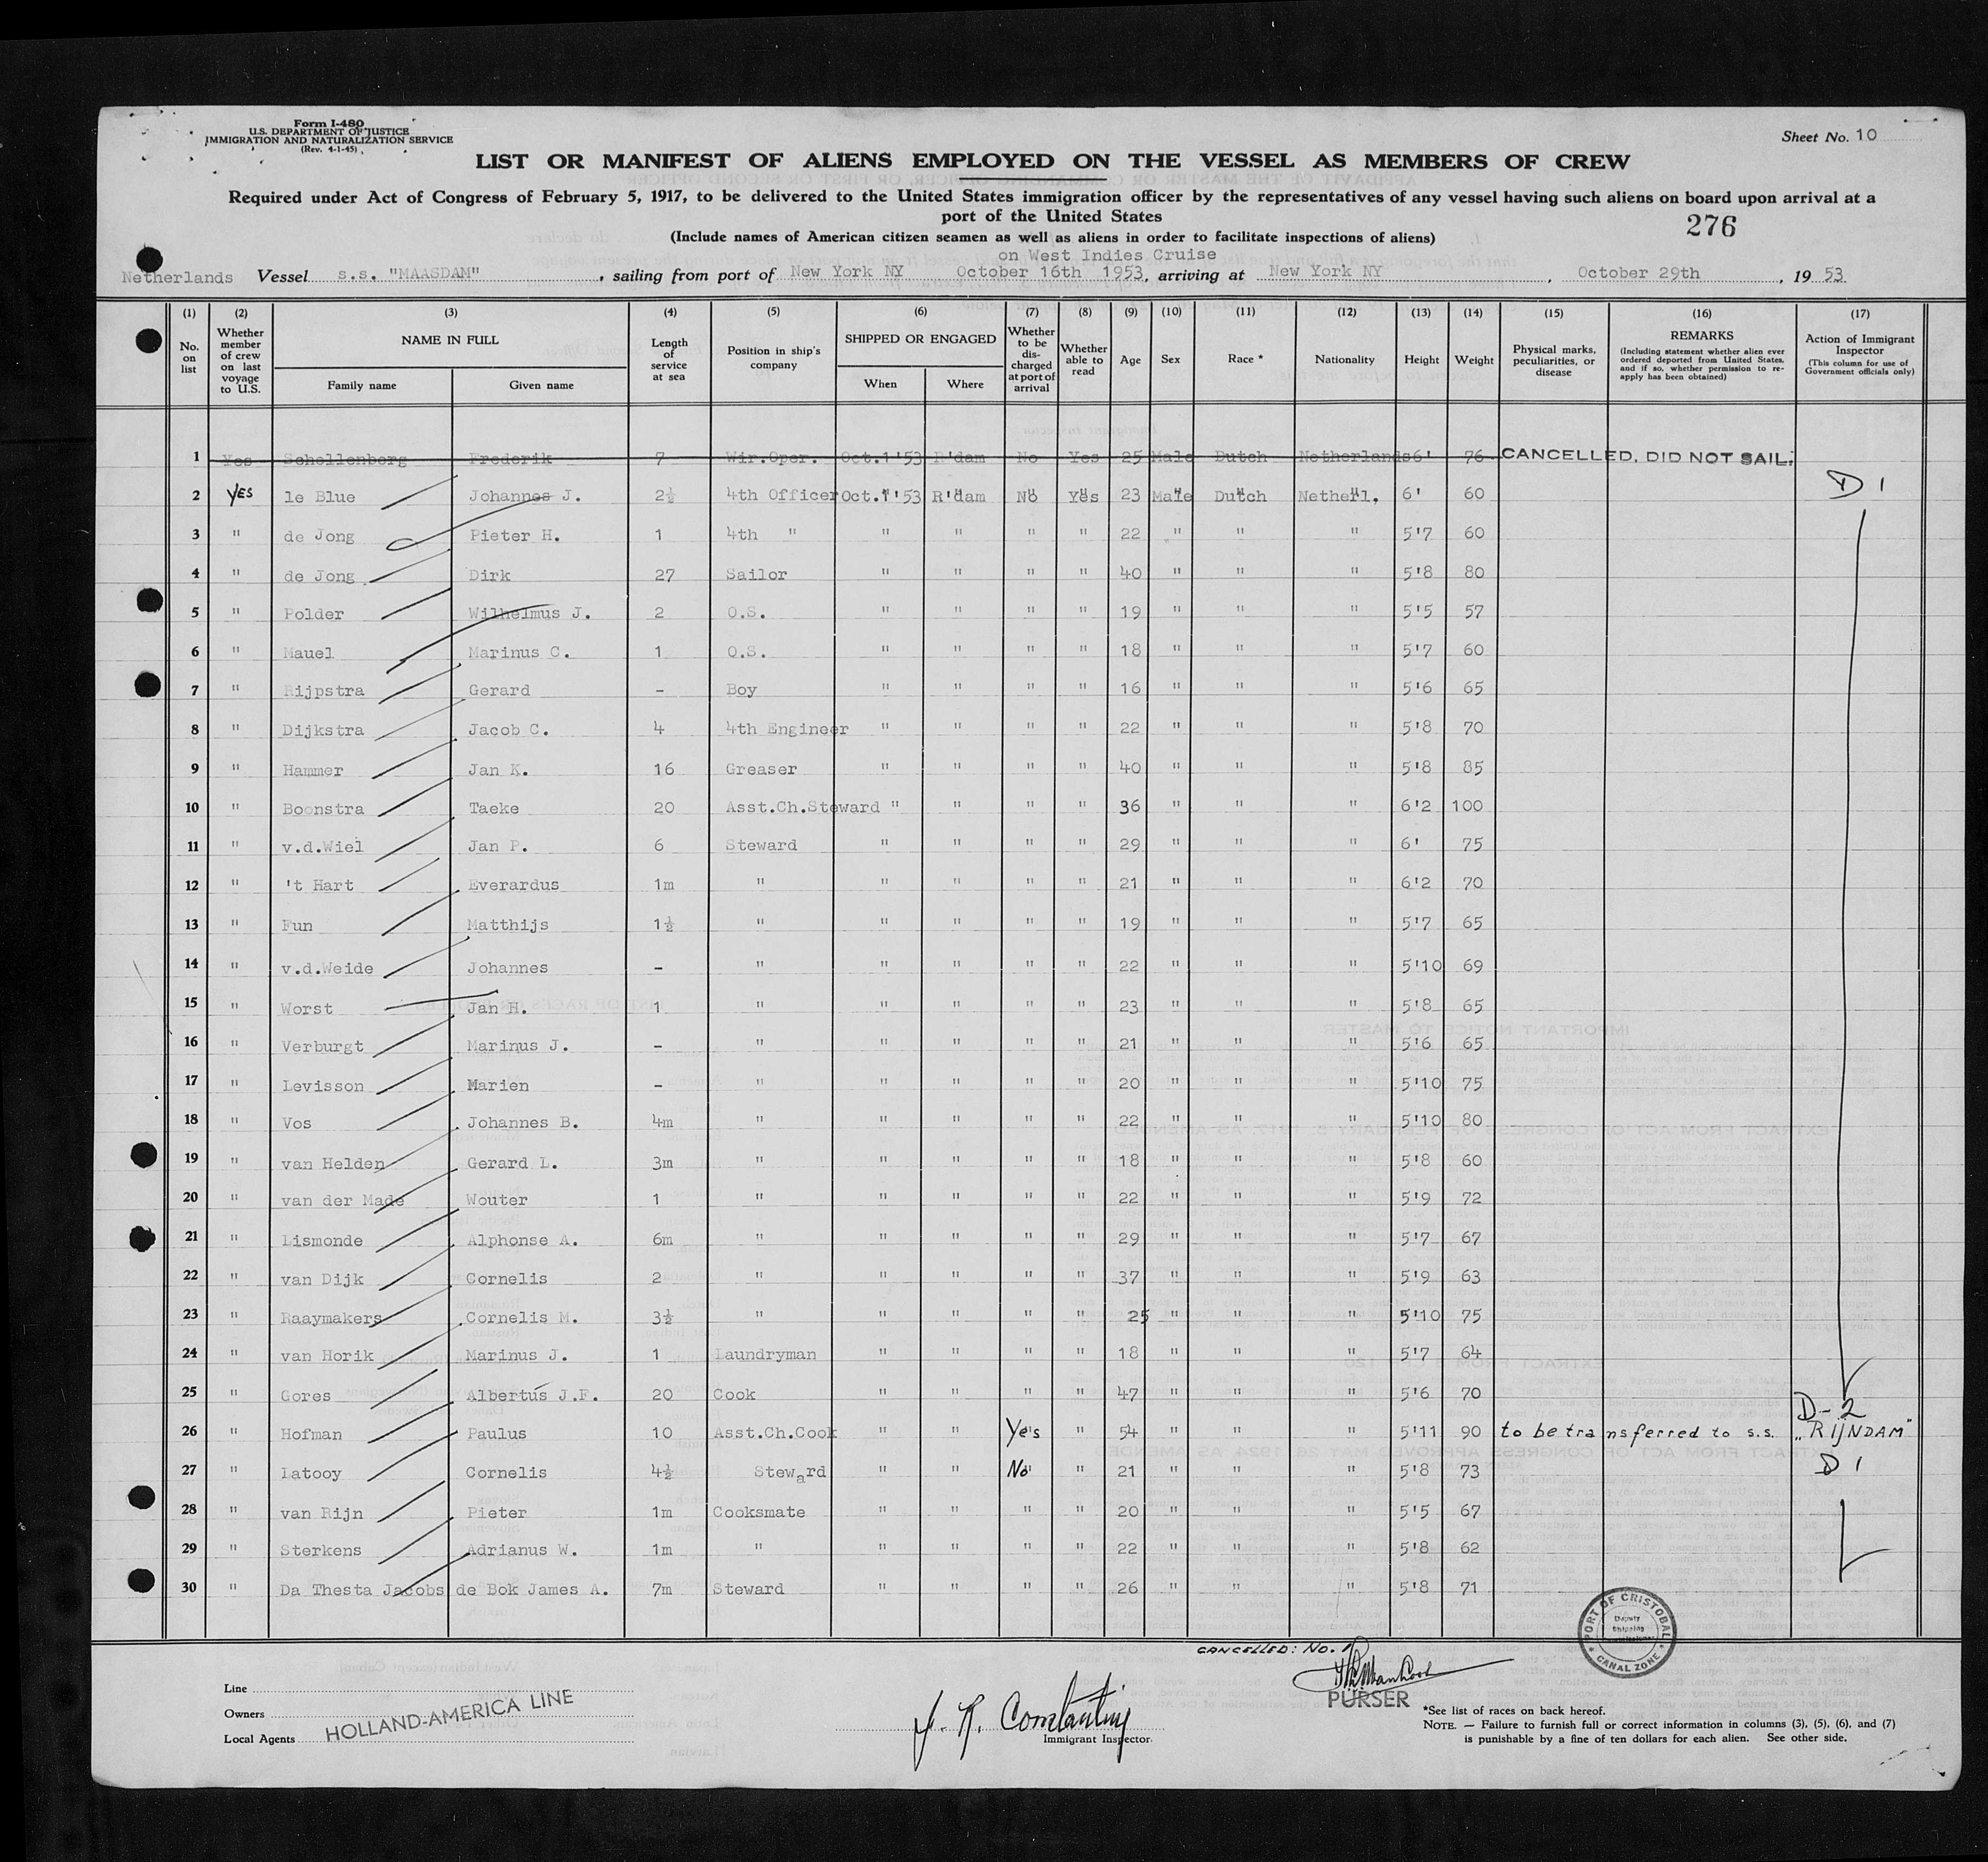 Form I-480
U.S. DEPARTMENT OF JUSTICE
IMMIGRATION AND NATURALIZATION SERVICE
(Rev. 4-1-45)
Sheet No. 10
LIST OR MANIFEST OF ALIENS EMPLOYED ON THE VESSEL AS MEMBERS OF CREW
Required under Act of Congress of February 5, 1917, to be delivered to the United States immigration officer by the representatives of any vessel having such aliens on board upon arrival at a
port of the United States
276
(Include names of American citizen seamen as well as aliens in order to facilitate inspections of aliens)
on West Indies Cruise
Netherlands Vessel s.s. "MAASDAM", sailing from port of New York NY October 16th 1953, arriving at New York NY, October 29th, 19 53
(1) (2) (3) (4) (5) (6) (7) (8) (9) (10) (11) (12) (13) (14) (15) (16) (17)
No. on list
Whether member of crew on last voyage to U.S.
NAME IN FULL
Family name
Given name
Length of service at sea
Position in ship's company
SHIPPED OR ENGAGED
When
Where
Whether to be discharged at port of arrival
Whether able to read
Age
Sex
Race *
Nationality
Height
Weight
Physical marks, peculiarities, or disease
REMARKS
(Including statement whether alien ever ordered deported from United States, and if so, whether permission to re-apply has been obtained)
Action of Immigrant Inspector
(This column for use of Government officials only)
1 Yes Schellenberg Frederik 7 Wir.Oper. Oct.1'53 R'dam No Yes 25 Male Dutch Netherlands 6' 76 CANCELLED, DID NOT SAIL.
2 YES le Blue Johannes J. 2½ 4th Officer Oct.1'53 R'dam No Yes 23 Male Dutch Netherl. 6' 60 D 1
3 " de Jong Pieter H. 1 4th " " " " " 22 " " " 5'7 60
4 " de Jong Dirk 27 Sailor " " " " 40 " " " 5'8 80
5 " Polder Wilhelmus J. 2 O.S. " " " " 19 " " " 5'5 57
6 " Mauel Marinus C. 1 O.S. " " " " 18 " " " 5'7 60
7 " Rijpstra Gerard - Boy " " " " 16 " " " 5'6 65
8 " Dijkstra Jacob C. 4 4th Engineer " " " " 22 " " " 5'8 70
9 " Hammer Jan K. 16 Greaser " " " " 40 " " " 5'8 85
10 " Boonstra Taeke 20 Asst.Ch.Steward " " " " 36 " " " 6'2 100
11 " v.d.Wiel Jan P. 6 Steward " " " " 29 " " " 6' 75
12 " 't Hart Everardus 1m " " " " " 21 " " " 6'2 70
13 " Fun Matthijs 1½ " " " " " 19 " " " 5'7 65
14 " v.d.Weide Johannes - " " " " " 22 " " " 5'10 69
15 " Worst Jan H. 1 " " " " " 23 " " " 5'8 65
16 " Verburgt Marinus J. - " " " " " 21 " " " 5'6 65
17 " Levisson Marien - " " " " " 20 " " " 5'10 75
18 " Vos Johannes B. 4m " " " " " 22 " " " 5'10 80
19 " van Helden Gerard L. 3m " " " " " 18 " " " 5'8 60
20 " van der Made Wouter 1 " " " " " 22 " " " 5'9 72
21 " Lismonde Alphonse A. 6m " " " " " 29 " " " 5'7 67
22 " van Dijk Cornelis 2 " " " " " 37 " " " 5'9 63
23 " Raaymakers Cornelis M. 3½ " " " " " 25 " " " 5'10 75
24 " van Horik Marinus J. 1 Laundryman " " " " 18 " " " 5'7 64
25 " Gores Albertus J.F. 20 Cook " " " " 47 " " " 5'6 70
26 " Hofman Paulus 10 Asst.Ch.Cook " " Yes " 54 " " " 5'11 90 to be transferred to s.s. "RIJNDAM" D-2
27 " Latooy Cornelis 4½ Steward " " No " 21 " " " 5'8 73 D 1
28 " van Rijn Pieter 1m Cooksmate " " " " 20 " " " 5'5 67
29 " Sterkens Adrianus W. 1m " " " " " 22 " " " 5'8 62
30 " Da Thesta Jacobs de Bok James A. 7m Steward " " " " 26 " " " 5'8 71
PORT OF CRISTOBAL
Deputy Shipping Commissioner
CANAL ZONE
CANCELLED: No. 1
PURSER
Line
Owners
Local Agents
HOLLAND-AMERICA LINE
Immigrant Inspector.
*See list of races on back hereof.
NOTE. — Failure to furnish full or correct information in columns (3), (5), (6), and (7)
is punishable by a fine of ten dollars for each alien. See other side.